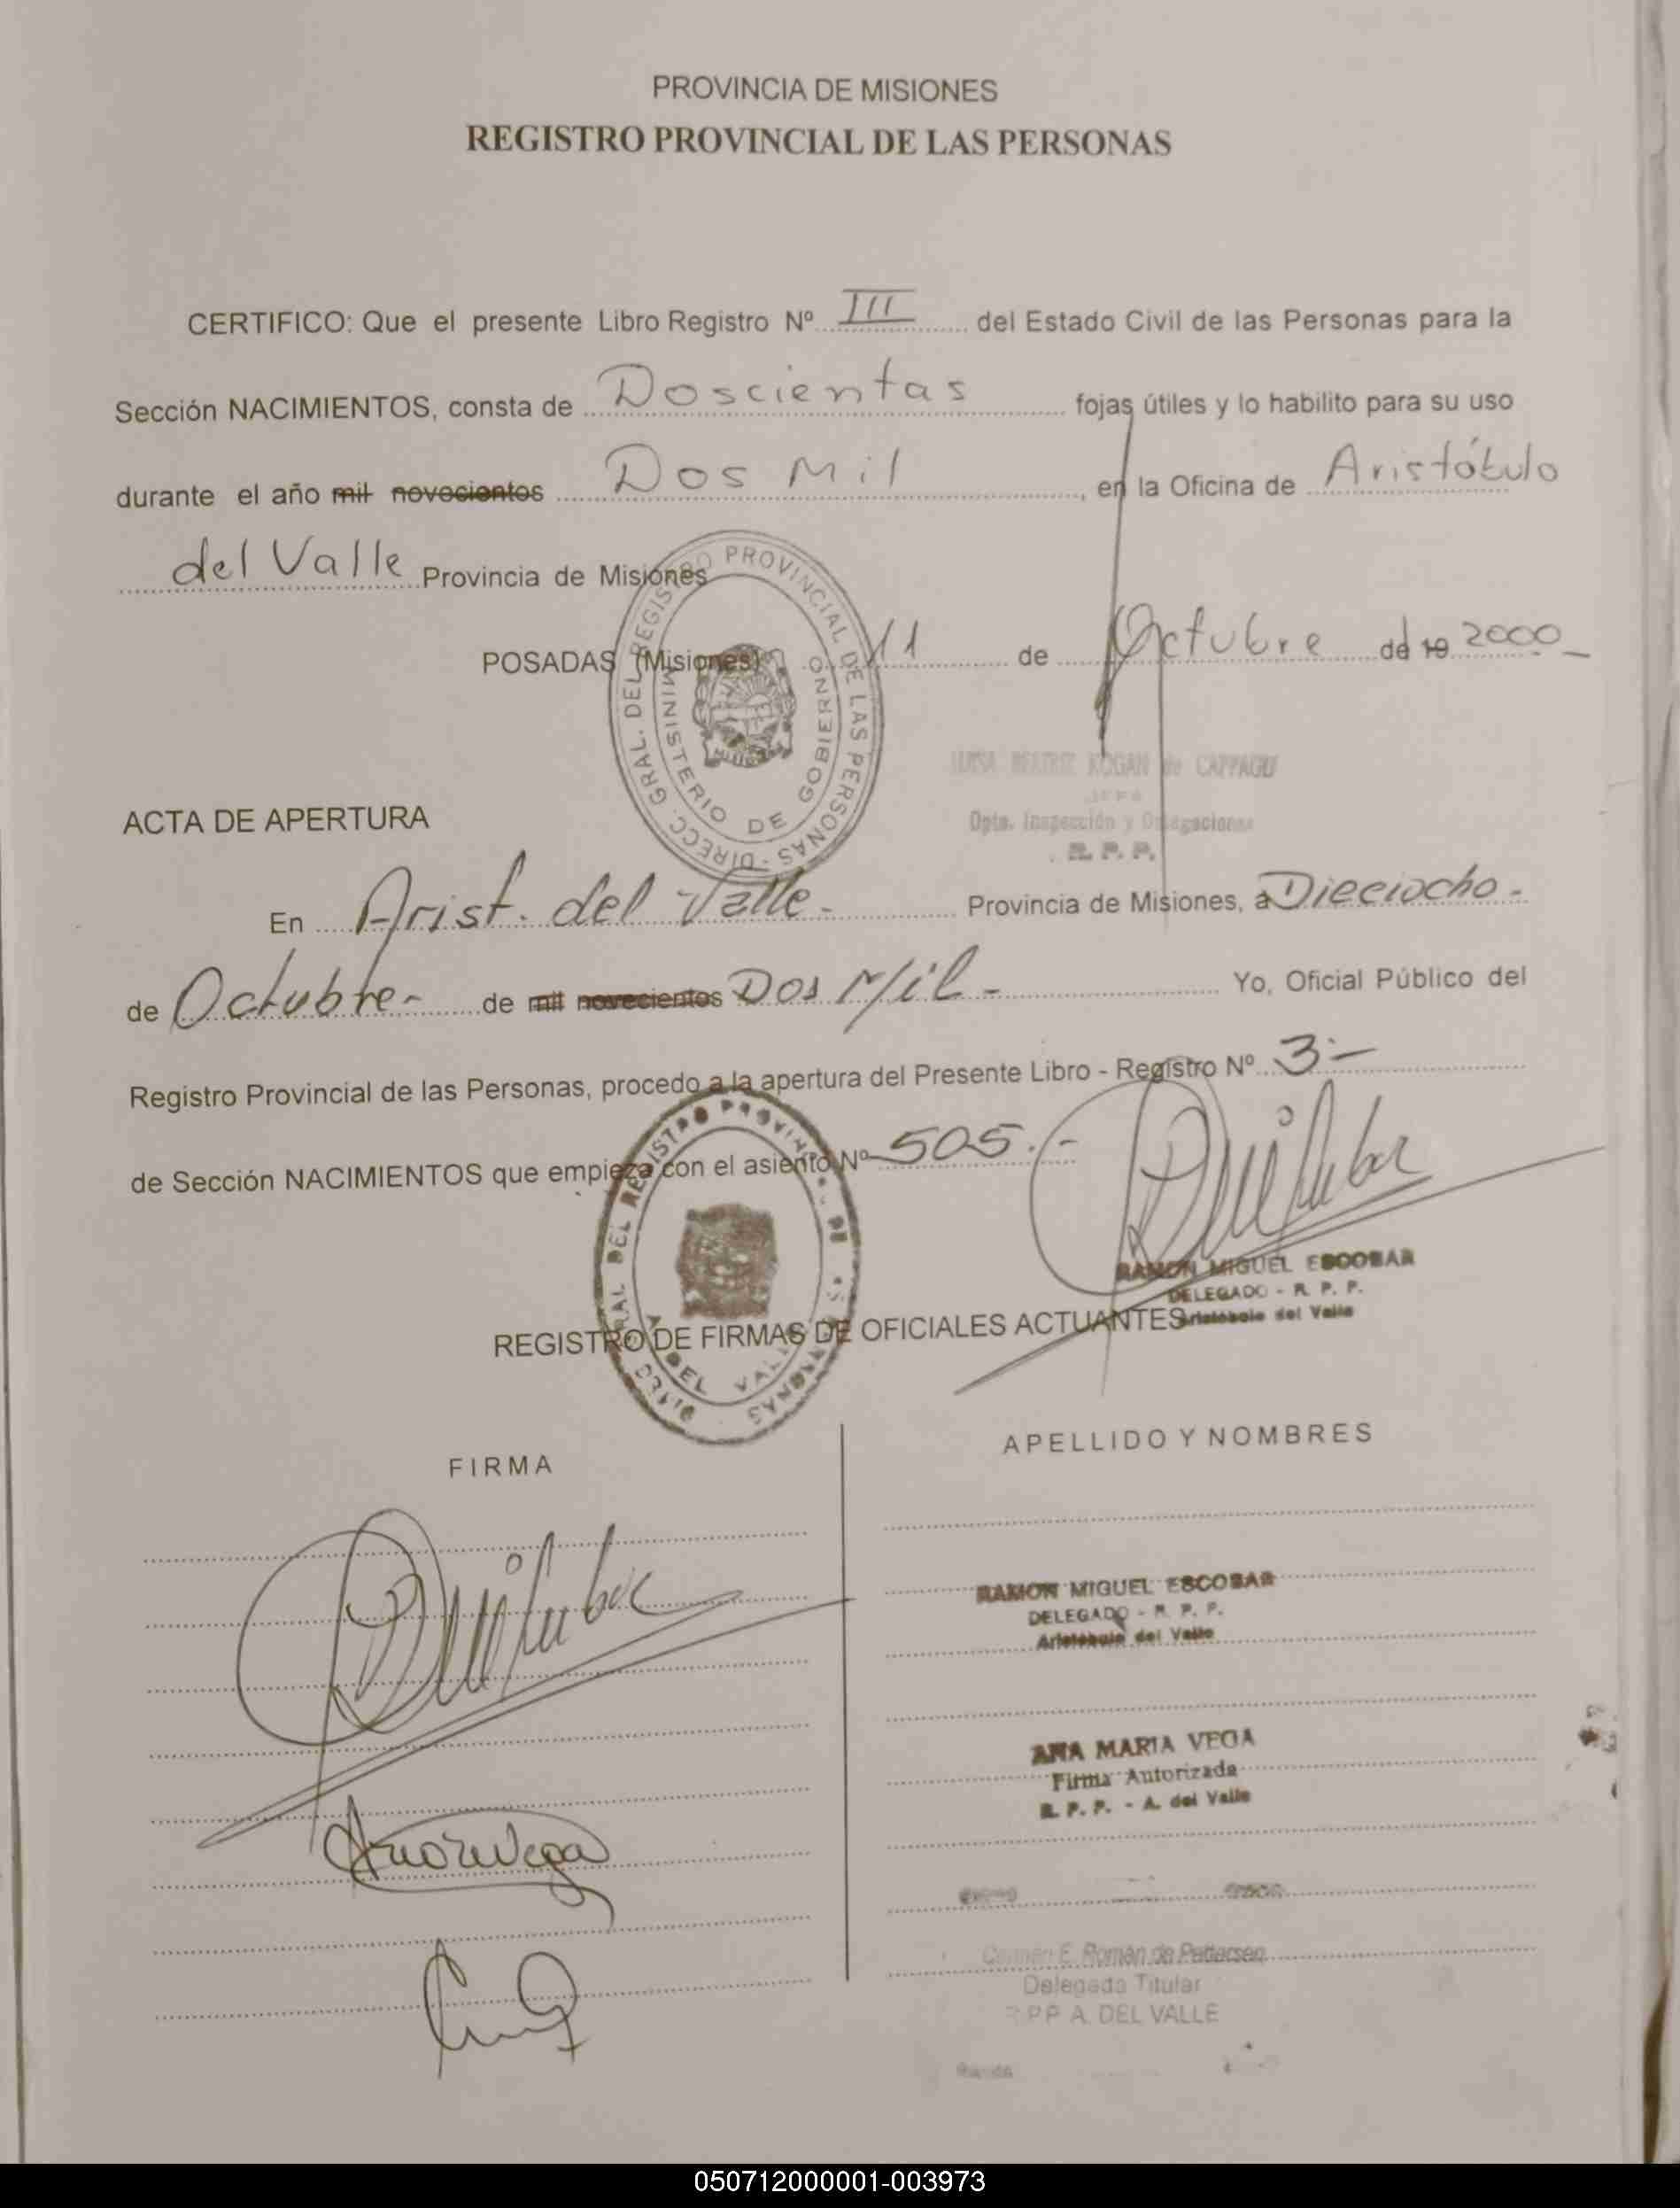 PROVINCIA DE MISIONES
REGISTRO PROVINCIAL DE LAS PERSONAS
CERTIFICO: Que el presente Libro Registro Nº III del Estado Civil de las Personas para la
Sección NACIMIENTOS, consta de Doscientas fojas útiles y lo habilito para su uso
durante el año mil novecientos Dos Mil, en la Oficina de Aristóbulo
del Valle Provincia de Misiones
POSADAS (Misiones) 11 de Octubre de 19 2000
DIRECC. GRAL. DEL REGISTRO PROVINCIAL DE LAS PERSONAS
MINISTERIO DE GOBIERNO
KOGAN de
Dpto. Inspección y Delegaciones
R. P. P.
ACTA DE APERTURA
En Arist. del Valle.- Provincia de Misiones, a Dieciocho-
de Octubre- de mil novecientos Dos Mil- Yo, Oficial Público del
Registro Provincial de las Personas, procedo a la apertura del Presente Libro - Registro Nº 3.-
de Sección NACIMIENTOS que empieza con el asiento Nº 505.-
RAMON MIGUEL ESCOBAR
DELEGADO - R. P. P.
Aristóbulo del Valle
REGISTRO DE FIRMAS DE OFICIALES ACTUANTES
FIRMA
APELLIDO Y NOMBRES
RAMON MIGUEL ESCOBAR
DELEGADO - R. P. P.
Aristóbulo del Valle
ANA MARIA VEGA
Firma Autorizada
R. P. P. - A. del Valle
Carmen E. Román de Pettersen
Delegada Titular
R.P.P. A. DEL VALLE
050712000001-003973